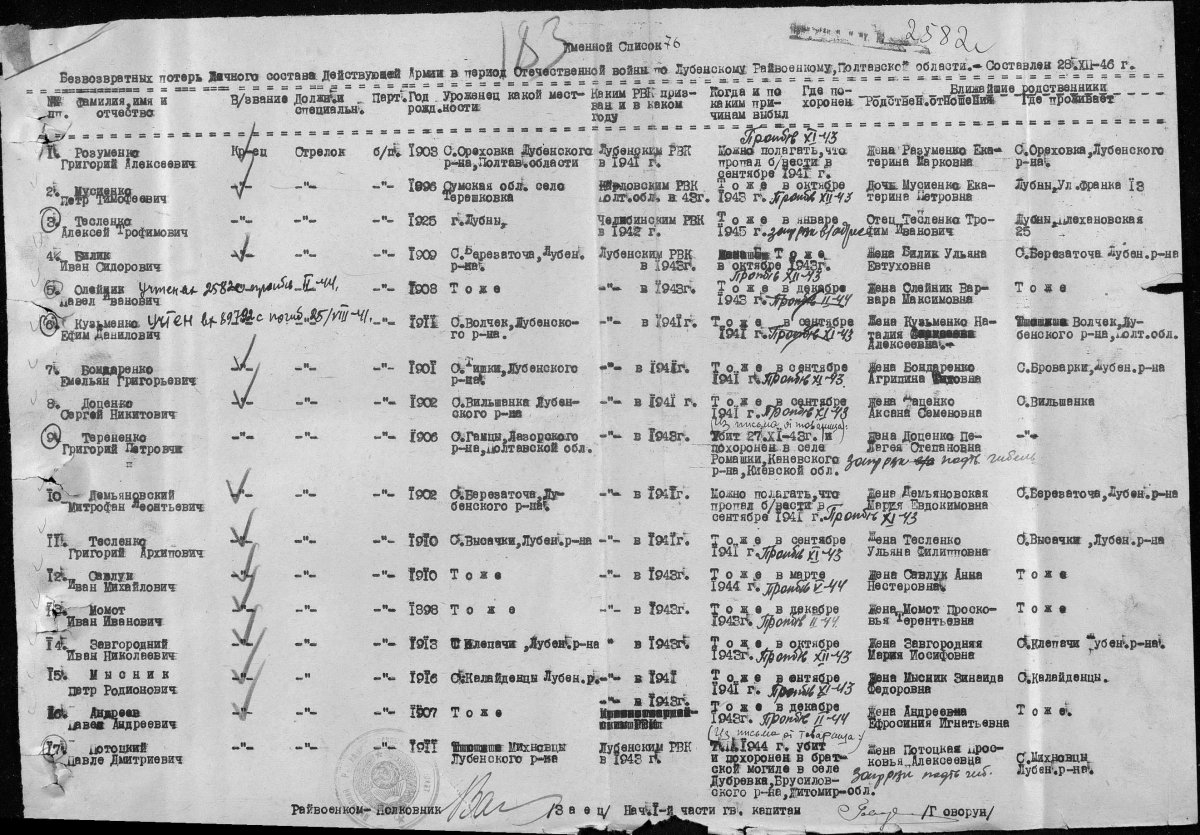 183
2582
Именной Список 76
Безвозвратных потерь Личного состава Действующей Армии в период Отечественной войны по Лубенскому Райвоенкому, Полтавской области.- Составлен 28.XII-46 г.
№№ пп. Фамилия, имя и отчество В/звание Должн. и специальн. Парт. Год рожд. Уроженец какой местности Каким РВК призван и в каком году Когда и по каким причинам выбыл Где похоронен Ближайшие родственники Родствен. отношения Где проживает
Пропбв XI-43
1. Розуменко Кр-ец Стрелок б/п. 1903 С.Ореховка Лубенского Лубенским РВК Можно полагать, что Жена Разуменко Ека- С.Ореховка, Лубенского
Григорий Алексеевич р-на, Полтав.области в 1941 г. пропал б/вести в терина Марковна р-на.
сентябре 1941 г.
2. Мусиенко -"- -"- -"- 1896 Сумская обл. село РВК Т о ж е в октябре Дочь Мусиенко Ека- Лубны, Ул.Франка 13
Петр Тимофеевич Терешковка Полт.обл. в 43г. 1943 г. Пропбв XII-43 терина Петровна
3. Тесленко -"- -"- -"- 1925 г.Лубны, Челябинским РВК Т о ж е в январе Отец Тесленко Тро- Лубны, Плехановская
Алексей Трофимович в 1942 г. 1945 г. фим Иванович 25
4. Билик -"- -"- -"- 1909 С.Березаточа, Лубен. Лубенским РВК Т о ж е Жена Билик Ульяна С.Березаточа Лубен.р-на
Иван Сидорович р-на. в 1943г. в октябре 1943г. Евтуховна
Пропбв XII-43
5. Олейник Учтен вх 2582с пропбв. II-44. 1908 Т о ж е -"- в 1943г. Т о ж е в декабре Жена Олейник Вар- Т о ж е
Павел Иванович 1943 г. Пропбв II-44 вара Максимовна
6. Кузьменко Учтен вх 89792с погиб. 25/VIII-41. 1911 С.Волчек, Лубенско- -"- в 1941г. Т о ж е в сентябре Жена Кузьменко На- Волчек, Лу-
Ефим Данилович го р-на. 1941 г. Пропбв XI-43 талия бенского р-на, Полт.обл.
Алексеевна.-
7. Бондаренко -"- -"- -"- 1901 С.Тишки, Лубенского -"- в 1941г. Т о ж е в сентябре Жена Бондаренко С.Броварки, Лубен.р-на
Емельян Григорьевич р-на. 1941 г. Пропбв XI-43 Агрипина Титовна
8. Доценко -"- -"- -"- 1902 С.Вильшанка Лубен- -"- в 1941 г. Т о ж е в сентябре Жена Даценко С.Вильшанка
Сергей Никитович ского р-на 1941 г. Пропбв XI-43 Аксана Семеновна
(Из письма от товарища):
9. Терененко -"- -"- -"- 1906 С.Гамцы, Лазорского -"- в 1943г. Убит 27.XI-43г. и Жена Доценко Пе- -"-
Григорий Петровчи р-на, Полтавской обл. похоронен в селе лагея Степановна
Ромашки, Каневского
р-на, Киевской обл.
10. Демьяновский -"- -"- -"- 1902 С.Березаточа, Лу- -"- в 1941г. Можно полагать, что Жена Демьяновская С.Березаточа, Лубен.р-на
Митрофан Леонтьевич бенского р-на. пропал б/вести в Мария Евдокимовна
сентябре 1941 г. Пропбв XI-43
11. Тесленко -"- -"- -"- 1910 С.Высачки, Лубен.р-на -"- в 1941г. Т о ж е в сентябре Жена Тесленко С.Высачки, Лубен.р-на
Григорий Архипович 1941 г. Пропбв XI-43 Ульяна Филипповна
12. Савлук -"- -"- -"- 1910 Т о ж е -"- в 1943г. Т о ж е в марте Жена Савлук Анна Т о ж е
Иван Михайлович 1944 г. Пропбв V-44 Нестеровна.
13. Момот -"- -"- -"- 1898 Т о ж е -"- в 1943г. Т о ж е в декабре Жена Момот Проско- Т о ж е
Иван Иванович 1943г. Пропбв II-44 вья Терентьевна
14. Завгородний -"- -"- -"- 1913 С Клепачи ,Лубен.р-на " в 1943г. Т о ж е в октябре Жена Завгородняя С.Клепачи Лубен.р-на.
Иван Николаевич 1943г. Пропбв XII-43 Мария Иосифовна
15. М ы с н и к -"- -"- -"- 1916 С.Калайденцы Лубен.р. -"- в 1941 Т о ж е в сентябре Жена Мысник Зинаида С.Калайденцы.
Петр Родионович 1941 г. Пропбв XI-43 Федоровна
16. Андреев -"- -"- -"- 1907 Т о ж е -"- в 1943г. Т о ж е в декабре Жена Андреевна Т о ж е.
Павел Андреевич 1943г. Пропбв II-44 Ефросиния Игнатьевна
(Из письма от товарища):
17. Потоцкий -"- -"- -"- 1911 Михновцы Лубенским РВК 1944 г. убит Жена Потоцкая Прос-
Павле Дмитриевич Лубенского р-на в 1943 г. и похоронен в брат- ковья Алексеевна С.Михновцы
ской могиле в селе Лубен.р-на.
Дубревка, Брусилов-
ского р-на, Житомир-обл.
Райвоенком- Полковник /З а е ц/ Нач.1-й части гв. капитан /Говорун/